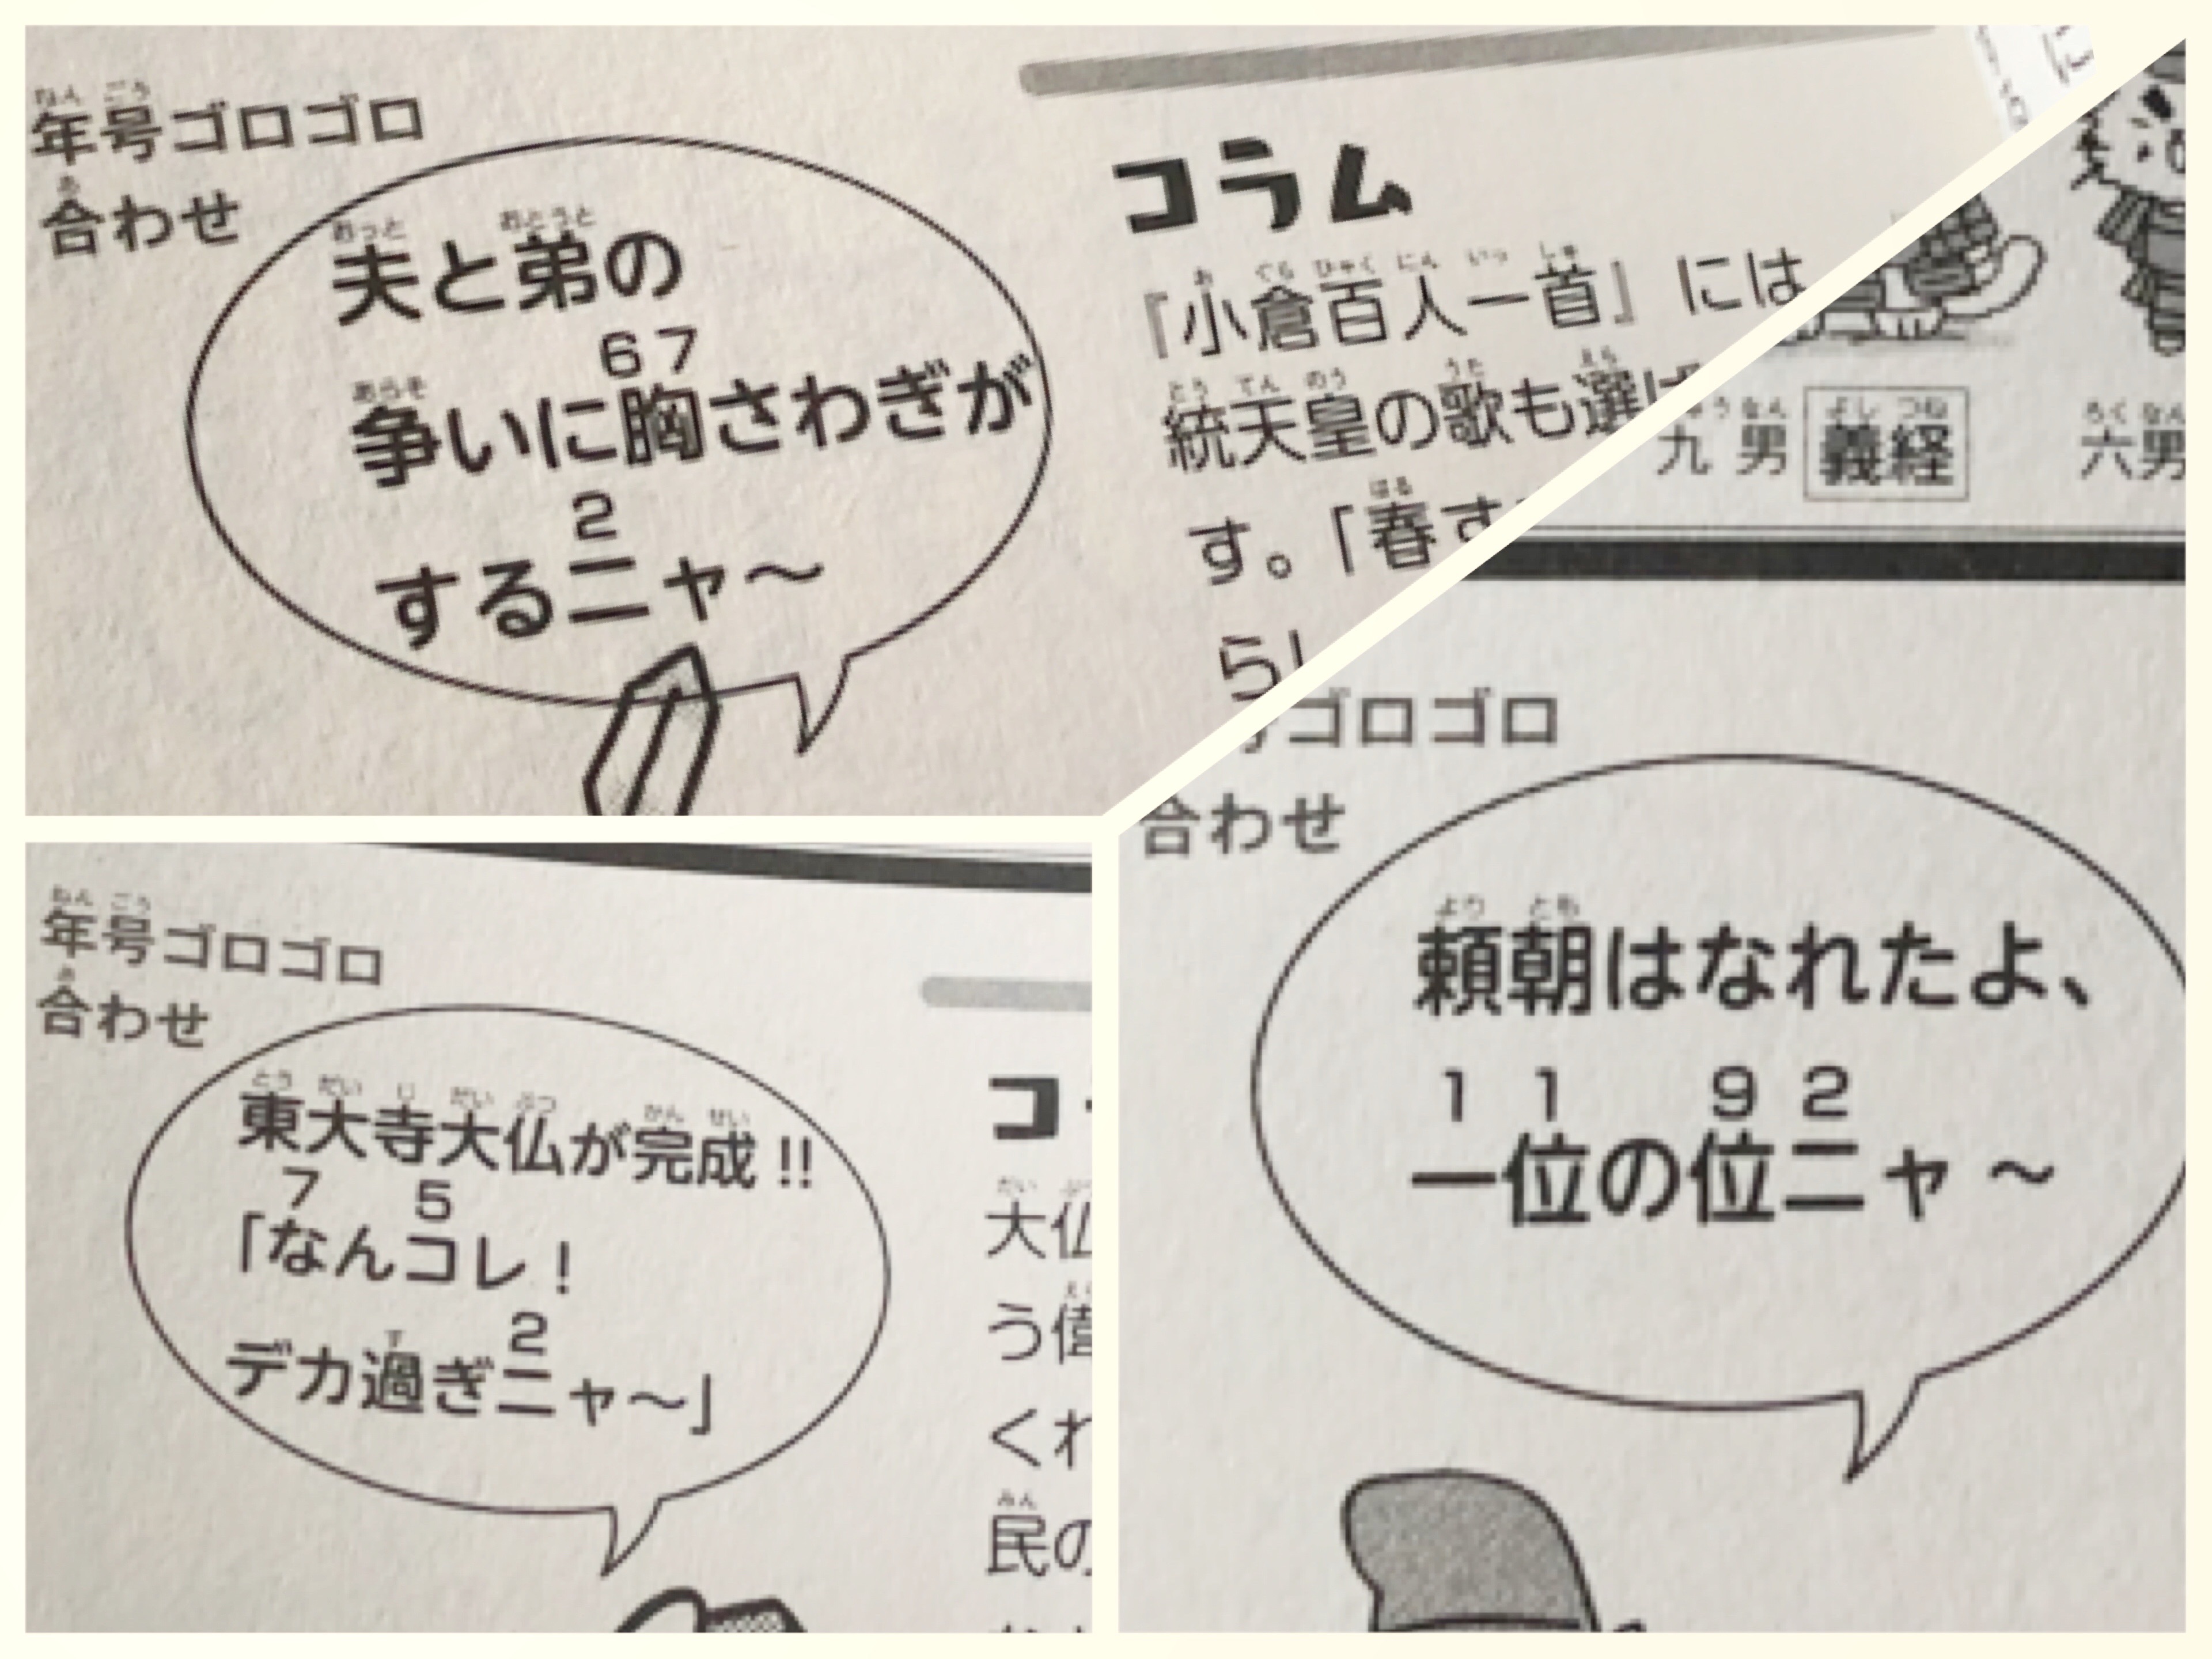 年号ゴロゴロ
合わせ
夫と弟の
67
争いに胸さわぎが
2
するニャ〜
コラム
『小倉百人一首』には
統天皇の歌も選ば
す。「春す
らし
九男 義経 六男
ゴロゴロ
合わせ
頼朝はなれたよ、
11 92
一位の位ニャ〜
年号ゴロゴロ
合わせ
東大寺大仏が完成!!
7 5
「なんコレ!
2
デカ過ぎニャ〜」
コ
大仏
う偉
くれ
民の